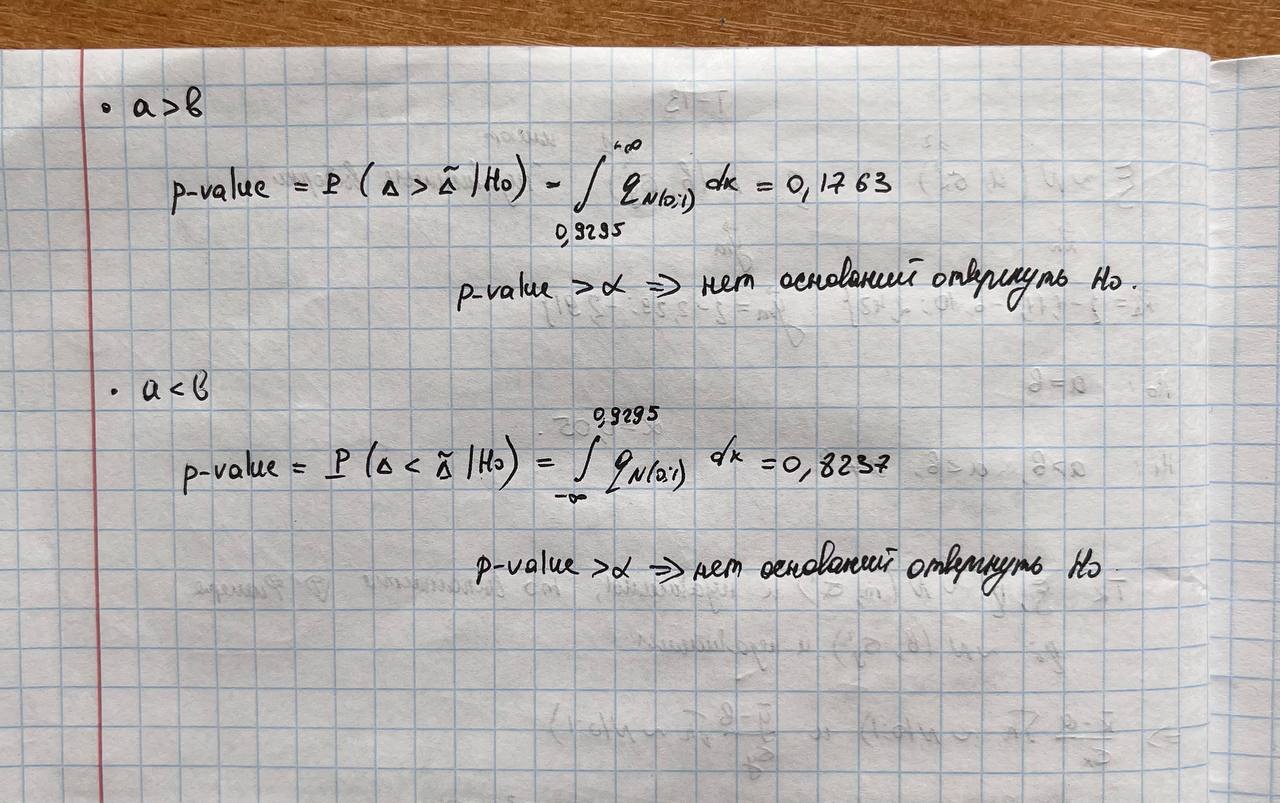 • a > b
p-value = P ( Δ > Δ̃ | H₀ ) = ∫_{0,9295}^{+∞} q_{N(0;1)} dx = 0,1763
p-value > α ⇒ нет оснований отвергнуть H₀.
• a < b
p-value = P ( Δ < Δ̃ | H₀ ) = ∫_{-∞}^{0,9295} q_{N(0;1)} dx = 0,8237
p-value > α ⇒ нет оснований отвергнуть H₀